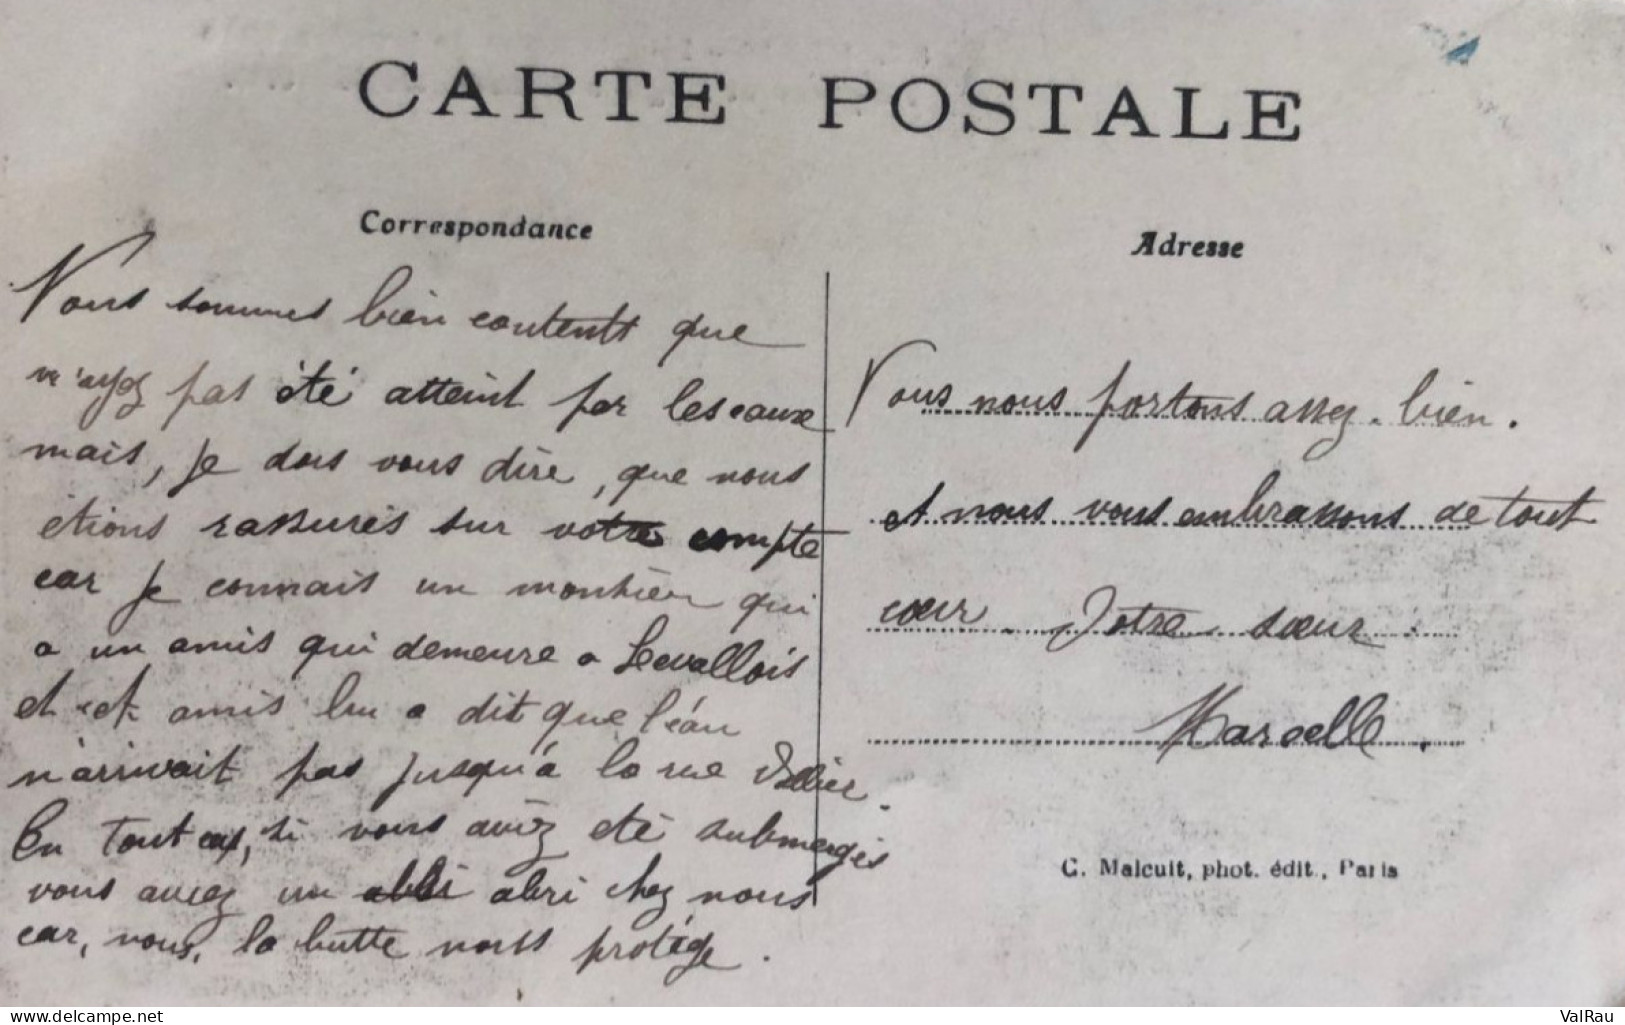 CARTE POSTALE
Correspondance
Nous sommes bien contents que
n'ayez pas été atteint par les eaux
mais, je dois vous dire, que nous
étions rassurés sur votre compte
car je connais un monsieur qui
a un amis qui demeure a Levallois
et cet amis lui a dit que l'éau
n'arrivait pas jusqu'a la rue
En tout cas, si vous aviez été submergés
vous auriez un abri chez nous
car, nous, la butte nous protége.
Adresse
Nous nous portons assez bien.
et nous vous embrassons de tout
cœur. Votre sœur
Marcelle.
C. Malcuit, phot. édit., Paris
delcampe.net
ValRau